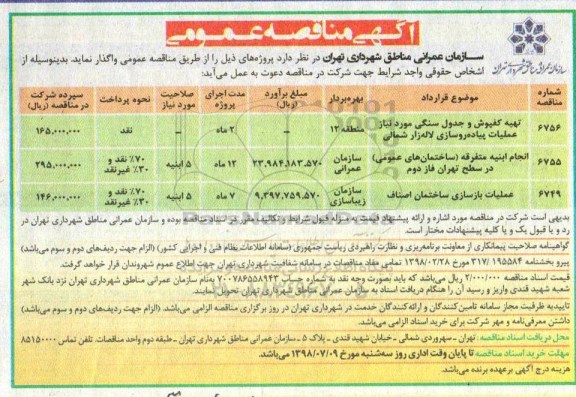 آگهی مناقصه عمومی
سازمان عمرانی مناطق شهرداری تهران
سازمان عمرانی مناطق شهرداری تهران در نظر دارد پروژه‌های ذیل را از طریق مناقصه عمومی واگذار نماید. بدینوسیله از
اشخاص حقوقی واجد شرایط جهت شرکت در مناقصه دعوت به عمل می‌آید:
شماره مناقصه موضوع قرارداد بهره‌بردار مبلغ برآورد (ریال) مدت اجرای پروژه صلاحیت مورد نیاز نحوه پرداخت سپرده شرکت در مناقصه (ریال)
۶۷۵۶ تهیه کفپوش و جدول سنگی مورد نیاز عملیات پیاده‌روسازی لاله‌زار شمالی منطقه ۱۲ – ۲ ماه – نقد ۱۶۵,۰۰۰,۰۰۰
۶۷۵۵ انجام ابنیه متفرقه (ساختمان‌های عمومی) در سطح تهران فاز دوم سازمان عمرانی ۲۳,۹۸۴,۱۸۳,۵۷۰ ۱۲ ماه ۵ ابنیه ۷۰٪ نقد و ۳۰٪ غیرنقد ۲۹۵,۰۰۰,۰۰۰
۶۷۴۹ عملیات بازسازی ساختمان اصناف سازمان زیباسازی ۹,۳۹۷,۷۵۹,۵۷۰ ۷ ماه ۵ ابنیه ۷۰٪ نقد و ۳۰٪ غیرنقد ۱۴۶,۰۰۰,۰۰۰
بدیهی است شرکت در مناقصه مورد اشاره و ارائه پیشنهاد قیمت به منزله قبول شرایط و تکالیف مقرر در اسناد مناقصه بوده و سازمان عمرانی مناطق شهرداری تهران در
رد و یا قبول یک و یا کلیه پیشنهادات مختار است.
گواهینامه صلاحیت پیمانکاری از معاونت برنامه‌ریزی و نظارت راهبردی ریاست جمهوری (سامانه اطلاعات نظام فنی و اجرائی کشور) (الزام جهت ردیف‌های دوم و سوم می‌باشد)
پیرو بخشنامه ۳۱۷/۱۹۵۵۸۴ مورخ ۱۳۹۸/۰۲/۲۸ تمامی مفاد مناقصات در سامانه شفافیت شهرداری تهران جهت اطلاع عموم شهروندان قرار خواهد گرفت.
قیمت اسناد مناقصه ۲/۰۰۰/۰۰۰ ریال می‌باشد که باید بصورت وجه نقد به شماره حساب ۷۰۰۷۸۶۵۵۸۹۴۳ بنام سازمان عمرانی مناطق شهرداری تهران نزد بانک شهر
شعبه شهید قندی واریز و رسید آن را هنگام دریافت اسناد به سازمان عمرانی مناطق شهرداری تهران تحویل نمایند.
تاییدیه ظرفیت مجاز سامانه تامین کنندگان و ارائه کنندگان خدمت در شهرداری تهران در روز برگزاری مناقصه الزامی می‌باشد. (الزام جهت ردیف‌های دوم و سوم می‌باشد)
داشتن معرفی‌نامه و مهر شرکت برای خرید اسناد الزامی می‌باشد.
محل دریافت اسناد مناقصه: تهران ـ سهروردی شمالی ـ خیابان شهید قندی ـ پلاک ۵ ـ سازمان عمرانی مناطق شهرداری تهران ـ طبقه دوم واحد مناقصات. تلفن تماس ۸۵۱۵۰۰۰۰
مهلت خرید اسناد مناقصه تا پایان وقت اداری روز سه‌شنبه مورخ ۱۳۹۸/۰۷/۰۹ می‌باشد.
هزینه درج آگهی برعهده برنده می‌باشد.